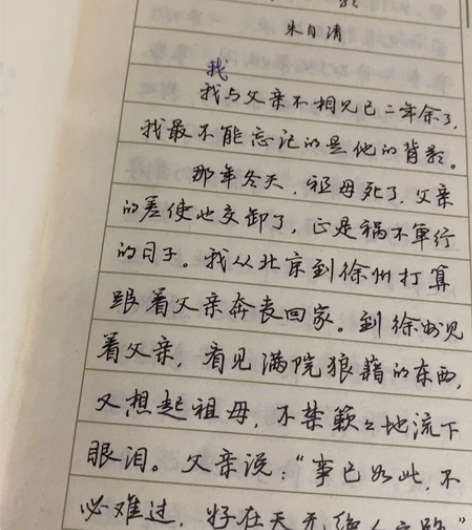 影
朱自清
我
我与父亲不相见已二年余了,
我最不能忘记的是他的背影。
那年冬天,祖母死了,父亲
的差使也交卸了,正是祸不单行
的日子。我从北京到徐州打算
跟着父亲奔丧回家。到徐州见
着父亲,看见满院狼藉的东西,
又想起祖母,不禁簌々地流下
眼泪。父亲说:“事已如此,不
必难过,好在天无绝人之路”